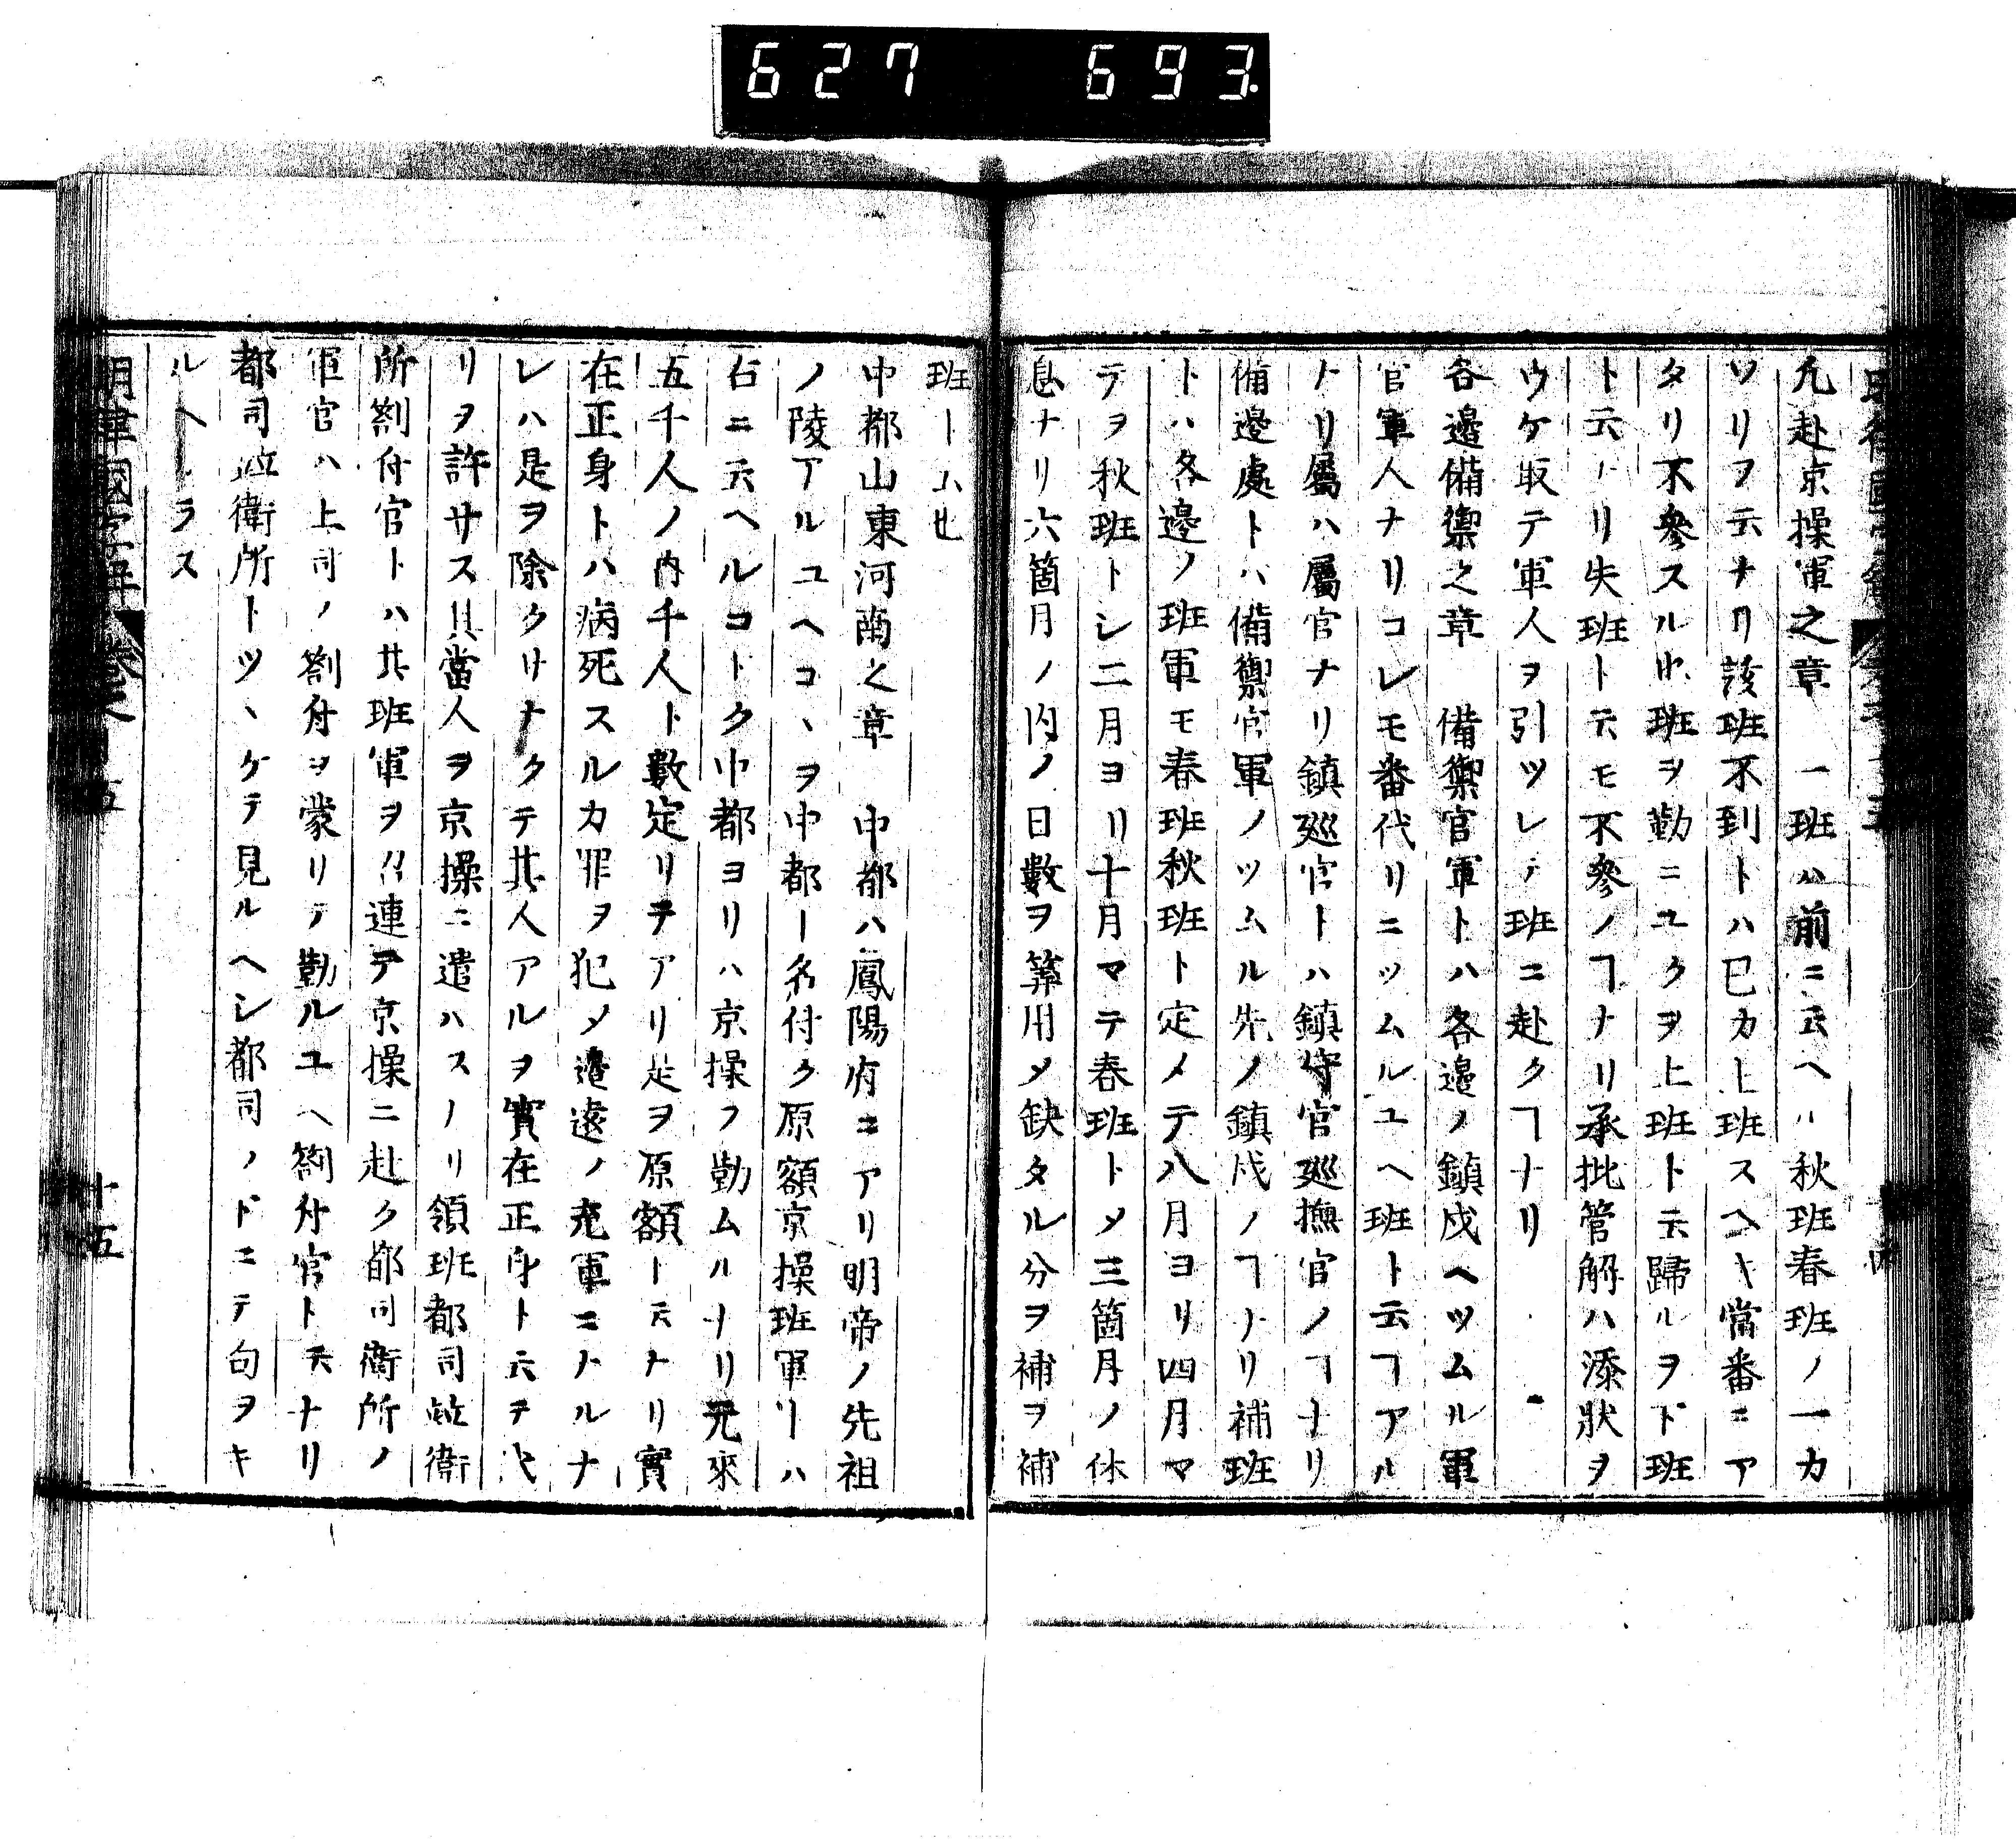 627 693
凡赴京操軍之章 一班ハ前ニ云ヘハ秋班春班ノ一カ
ツリヲ云ナリ該班不到トハ已カ上班スヘキ當番ニア
タリ不參スル也班ヲ勤ニユクヲ上班ト云歸ルヲ下班
ト云ナリ失班ト云モ不參ノヿナリ承批管解ハ添狀ヲ
ウケ取テ軍人ヲ引ツレテ班ニ赴クヿナリ
各邉備禦之章 備禦官軍トハ各邉ノ鎮戍ヘツムル軍
官軍人ナリコレモ番代リニツムルユヘ班ト云ヿアル
ナリ屬ハ屬官ナリ鎮廵官トハ鎮守官廵撫官ノヿナリ
備邉處トハ備禦官軍ノツムル先ノ鎮戍ノヿナリ補班
トハ各邉ノ班軍モ春班秋班ト定メテ八月ヨリ四月マ
テヲ秋班トシ二月ヨリ十月マテ春班トメ三箇月ノ休
息ナリ六箇月ノ内ノ日數ヲ筭用メ缺タル分ヲ補ヲ補
班ト云也
中都山東河南之章 中都ハ鳳陽府ニアリ明帝ノ先祖
ノ陵アルユヘコヽヲ中都ト名付ク原額京操班軍トハ
右ニ云ヘルコトク中都ヨリハ京操フ勤ムルナリ元來
五千人ノ内千人ト數定リテアリ是ヲ原額ト云ナリ實
在正身トハ病死スルカ罪ヲ犯メ邉遠ノ充軍ニナルナ
レハ是ヲ除クリナクテ其人アルヲ實在正身ト云テ代
リヲ許サス其當人ヲ京操ニ遣ハスナリ領班都司並衛
所劄付官トハ其班軍ヲ召連テ京操ニ赴ク都司衛所ノ
軍官ハ上司ノ劄付ヲ蒙リテ勤ルユヘ劄付官ト云ナリ
都司並衛所トツヽケテ見ルヘシ都司ノ下ニテ句ヲキ
ルヘカラス
明律國字解 十五